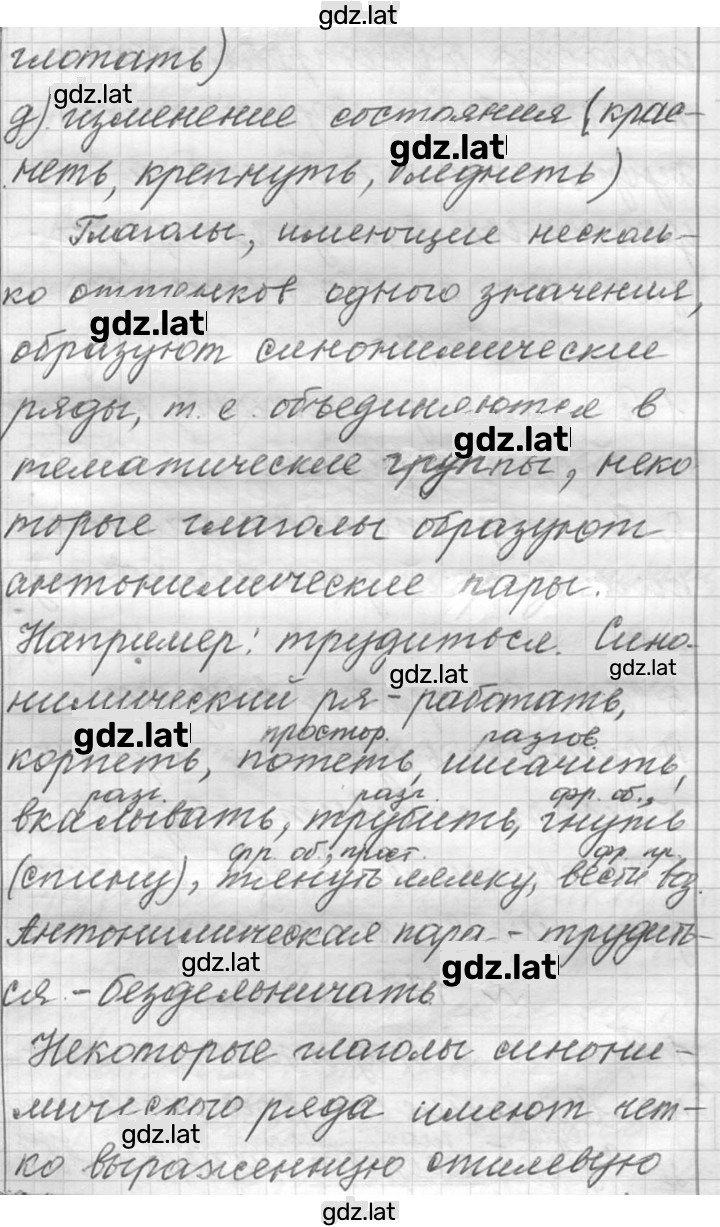 gdz.lat
глотать)
gdz.lat
д) изменение состояния (крас-
gdz.lat
неть, крепнуть, бледнеть)
Глаголы, имеющие несколь-
ко оттенков одного значения,
gdz.lat
образуют синонимические
ряды, т. е. объединяются в
gdz.lat
тематические группы, неко
торые глаголы образуют
антонимические пары.
Например: трудиться. Сино-
gdz.lat gdz.lat
нимический ря - работать,
gdz.lat простор. разгов.
корпеть, потеть, ишачить,
разг. разг. фр. об.,
вкалывать, трубить, гнуть
фр. об., прост. фр. пр.
(спину), тянуть лямку, вести воз.
Антонимическая пара - трудить-
gdz.lat gdz.lat
ся - бездельничать
Некоторые глаголы синони-
мического ряда имеют чет-
gdz.lat
ко выраженную стилевую
gdz.lat